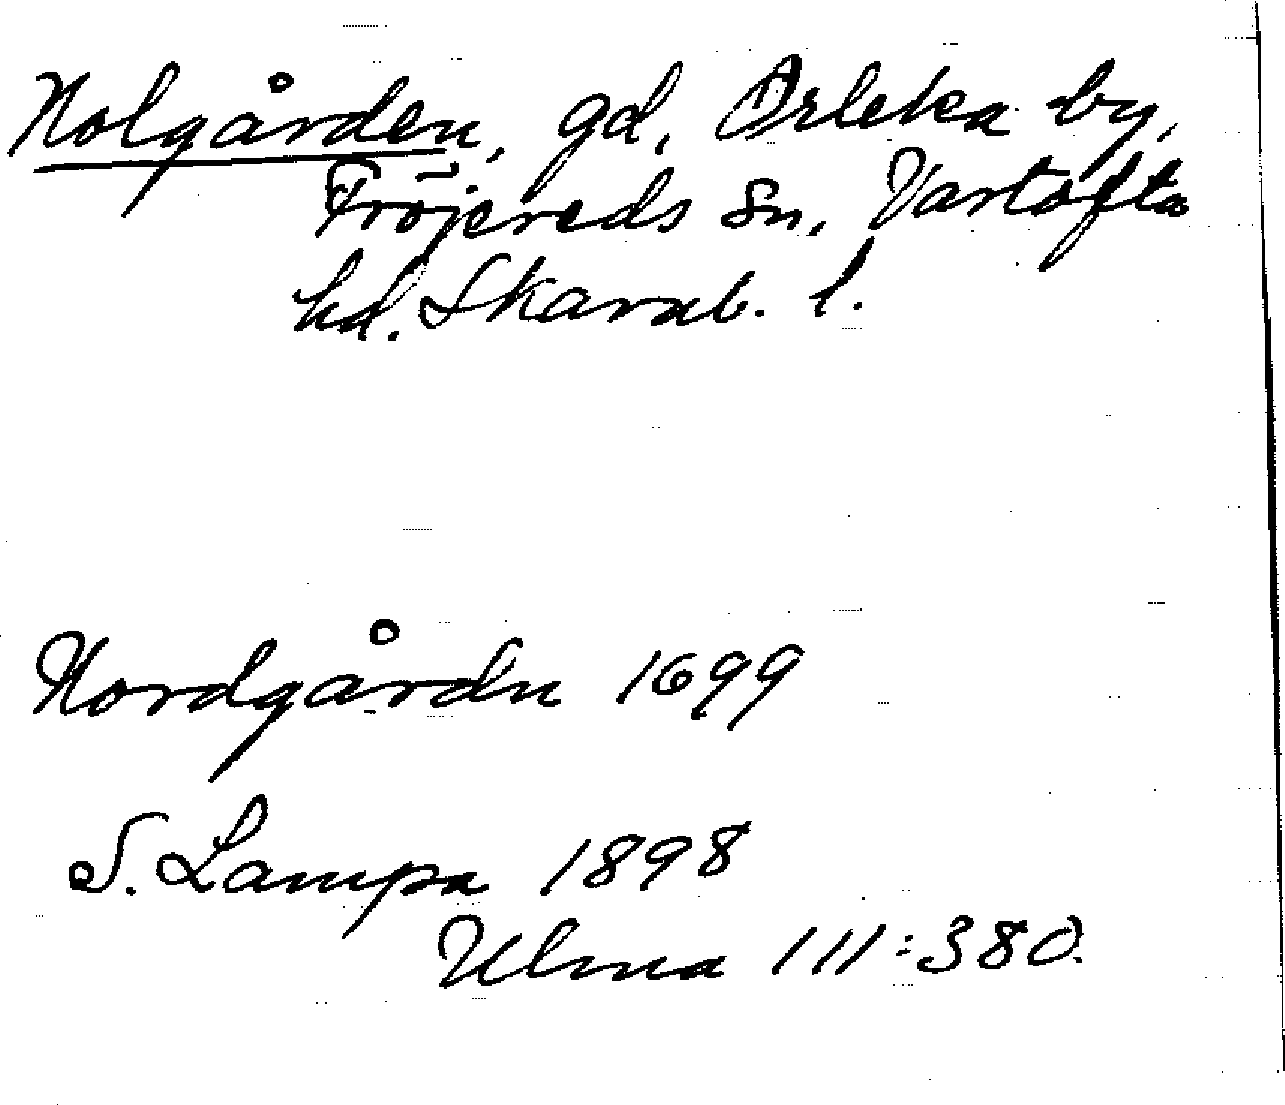 Nolgården, gd, Orleka by,
Fröjereds sn, Vartofta
hd. Skarab. l.
Nordgårdn 1699
S. Lampa 1898
Ulma 111:380.